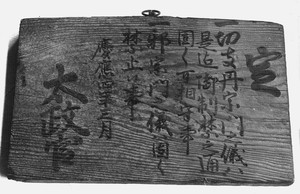 定
一切支丹宗門之儀ハ
是迄御制禁之通
固く可相守事
一邪宗門之儀固く
禁止候事
慶應四年三月
太政官